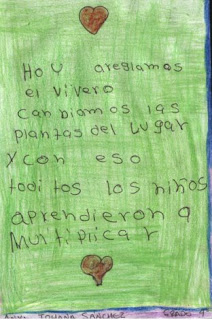 Hoy areglamos
el vivero
canbiamos las
plantas del lugar
y con eso
toditos los niños
aprendieron a
Multiplicar
Johana Sanchez Grado 4